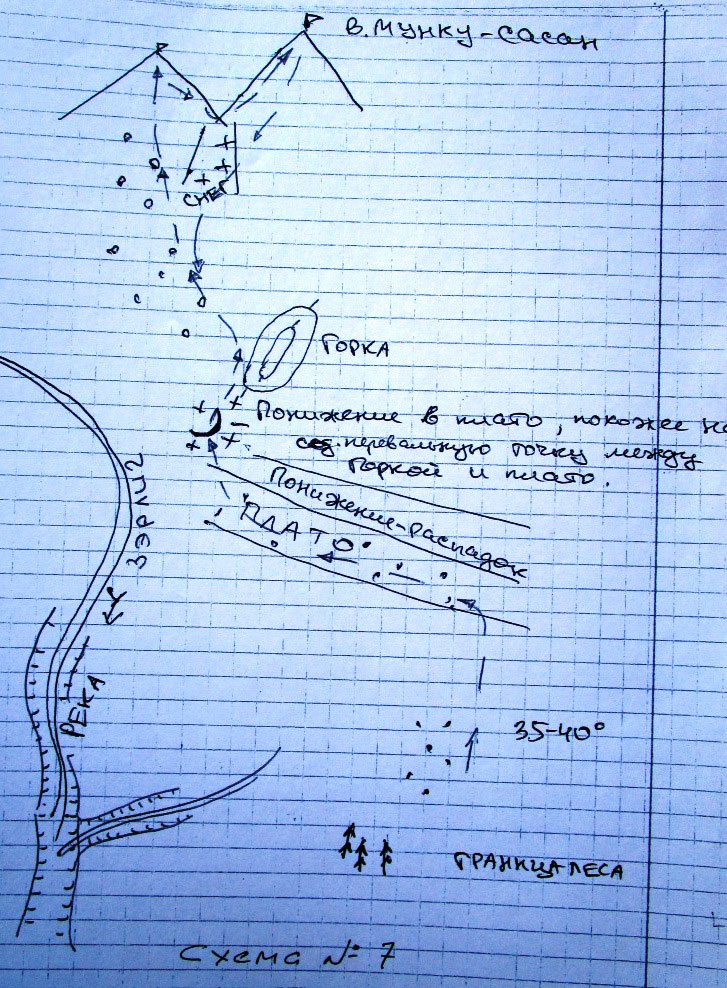 В. МУНКУ-САСАН
СНЕГ
ГОРКА
Понижение в плато, похожее на
сед. перевальную точку между
Горкой и плато.
Понижение-распадок
ПЛАТО
ЗЭРЛИГ
РЕКА
35-40°
ГРАНИЦА ЛЕСА
Схема № 7